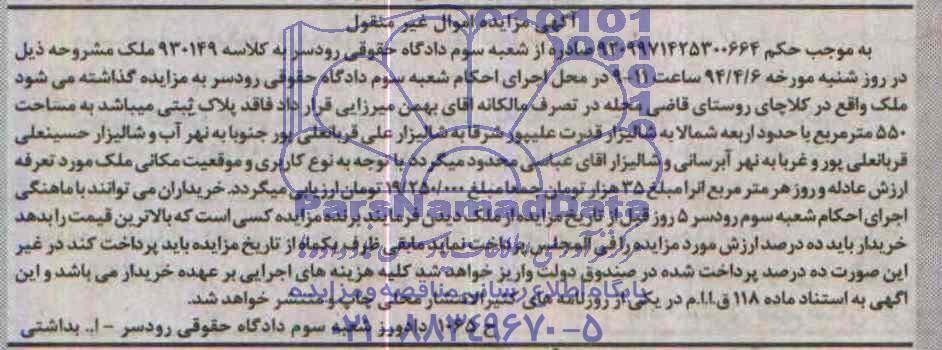 آگهی مزایده اموال غیر منقول
به موجب حکم ۹۲۰۹۹۷۱۴۲۵۳۰۰۶۶۴ صادره از شعبه سوم دادگاه حقوقی رودسر به کلاسه ۹۳۰۱۴۹ ملک مشروحه ذیل
در روز شنبه مورخه ۹۴/۴/۶ ساعت ۱۱-۹ در محل اجرای احکام شعبه سوم دادگاه حقوقی رودسر به مزایده گذاشته می شود
ملک واقع در کلاچای روستای قاضی محله در تصرف مالکانه اقای بهمن میرزایی قرار داد فاقد پلاک ثبتی میباشد به مساحت
۵۵۰ مترمربع با حدود اربعه شمالا به شالیزار قدرت علیپور شرقا به شالیزار علی قربانعلی پور جنوبا به نهر آب و شالیزار حسینعلی
قربانعلی پور و غربا به نهر آبرسانی و شالیزار اقای عباسی محدود میگردد با توجه به نوع کاربری و موقعیت مکانی ملک مورد تعرفه
ارزش عادله و روز هر متر مربع انرا مبلغ ۳۵ هزار تومان جمعا مبلغ ۱۹/۲۵۰/۰۰۰ تومان ارزیابی میگردد. خریداران می توانند با ماهنگی
اجرای احکام شعبه سوم رودسر ۵ روز قبل از تاریخ مزایده از ملک دیدن فرمایند برنده مزایده کسی است که بالاترین قیمت را بدهد
خریدار باید ده درصد ارزش مورد مزایده را فی المجلس پرداخت نماید مابقی ظرف یکماه از تاریخ مزایده باید پرداخت کند در غیر
این صورت ده درصد پرداخت شده در صندوق دولت واریز خواهد شد کلیه هزینه های اجرایی بر عهده خریدار می باشد و این
اگهی به استناد ماده ۱۱۸ ق.ا.ا.م در یکی از روزنامه های کثیرالانتشار محلی چاپ و منتشر خواهد شد.
ح ۱۰۶۵ دادورز شعبه سوم دادگاه حقوقی رودسر - ا.. بداشتی
ParsNamadData
پایگاه اطلاع رسانی مناقصه و مزایده
۰۲۱-۸۸۳۴۹۶۷۰-۵